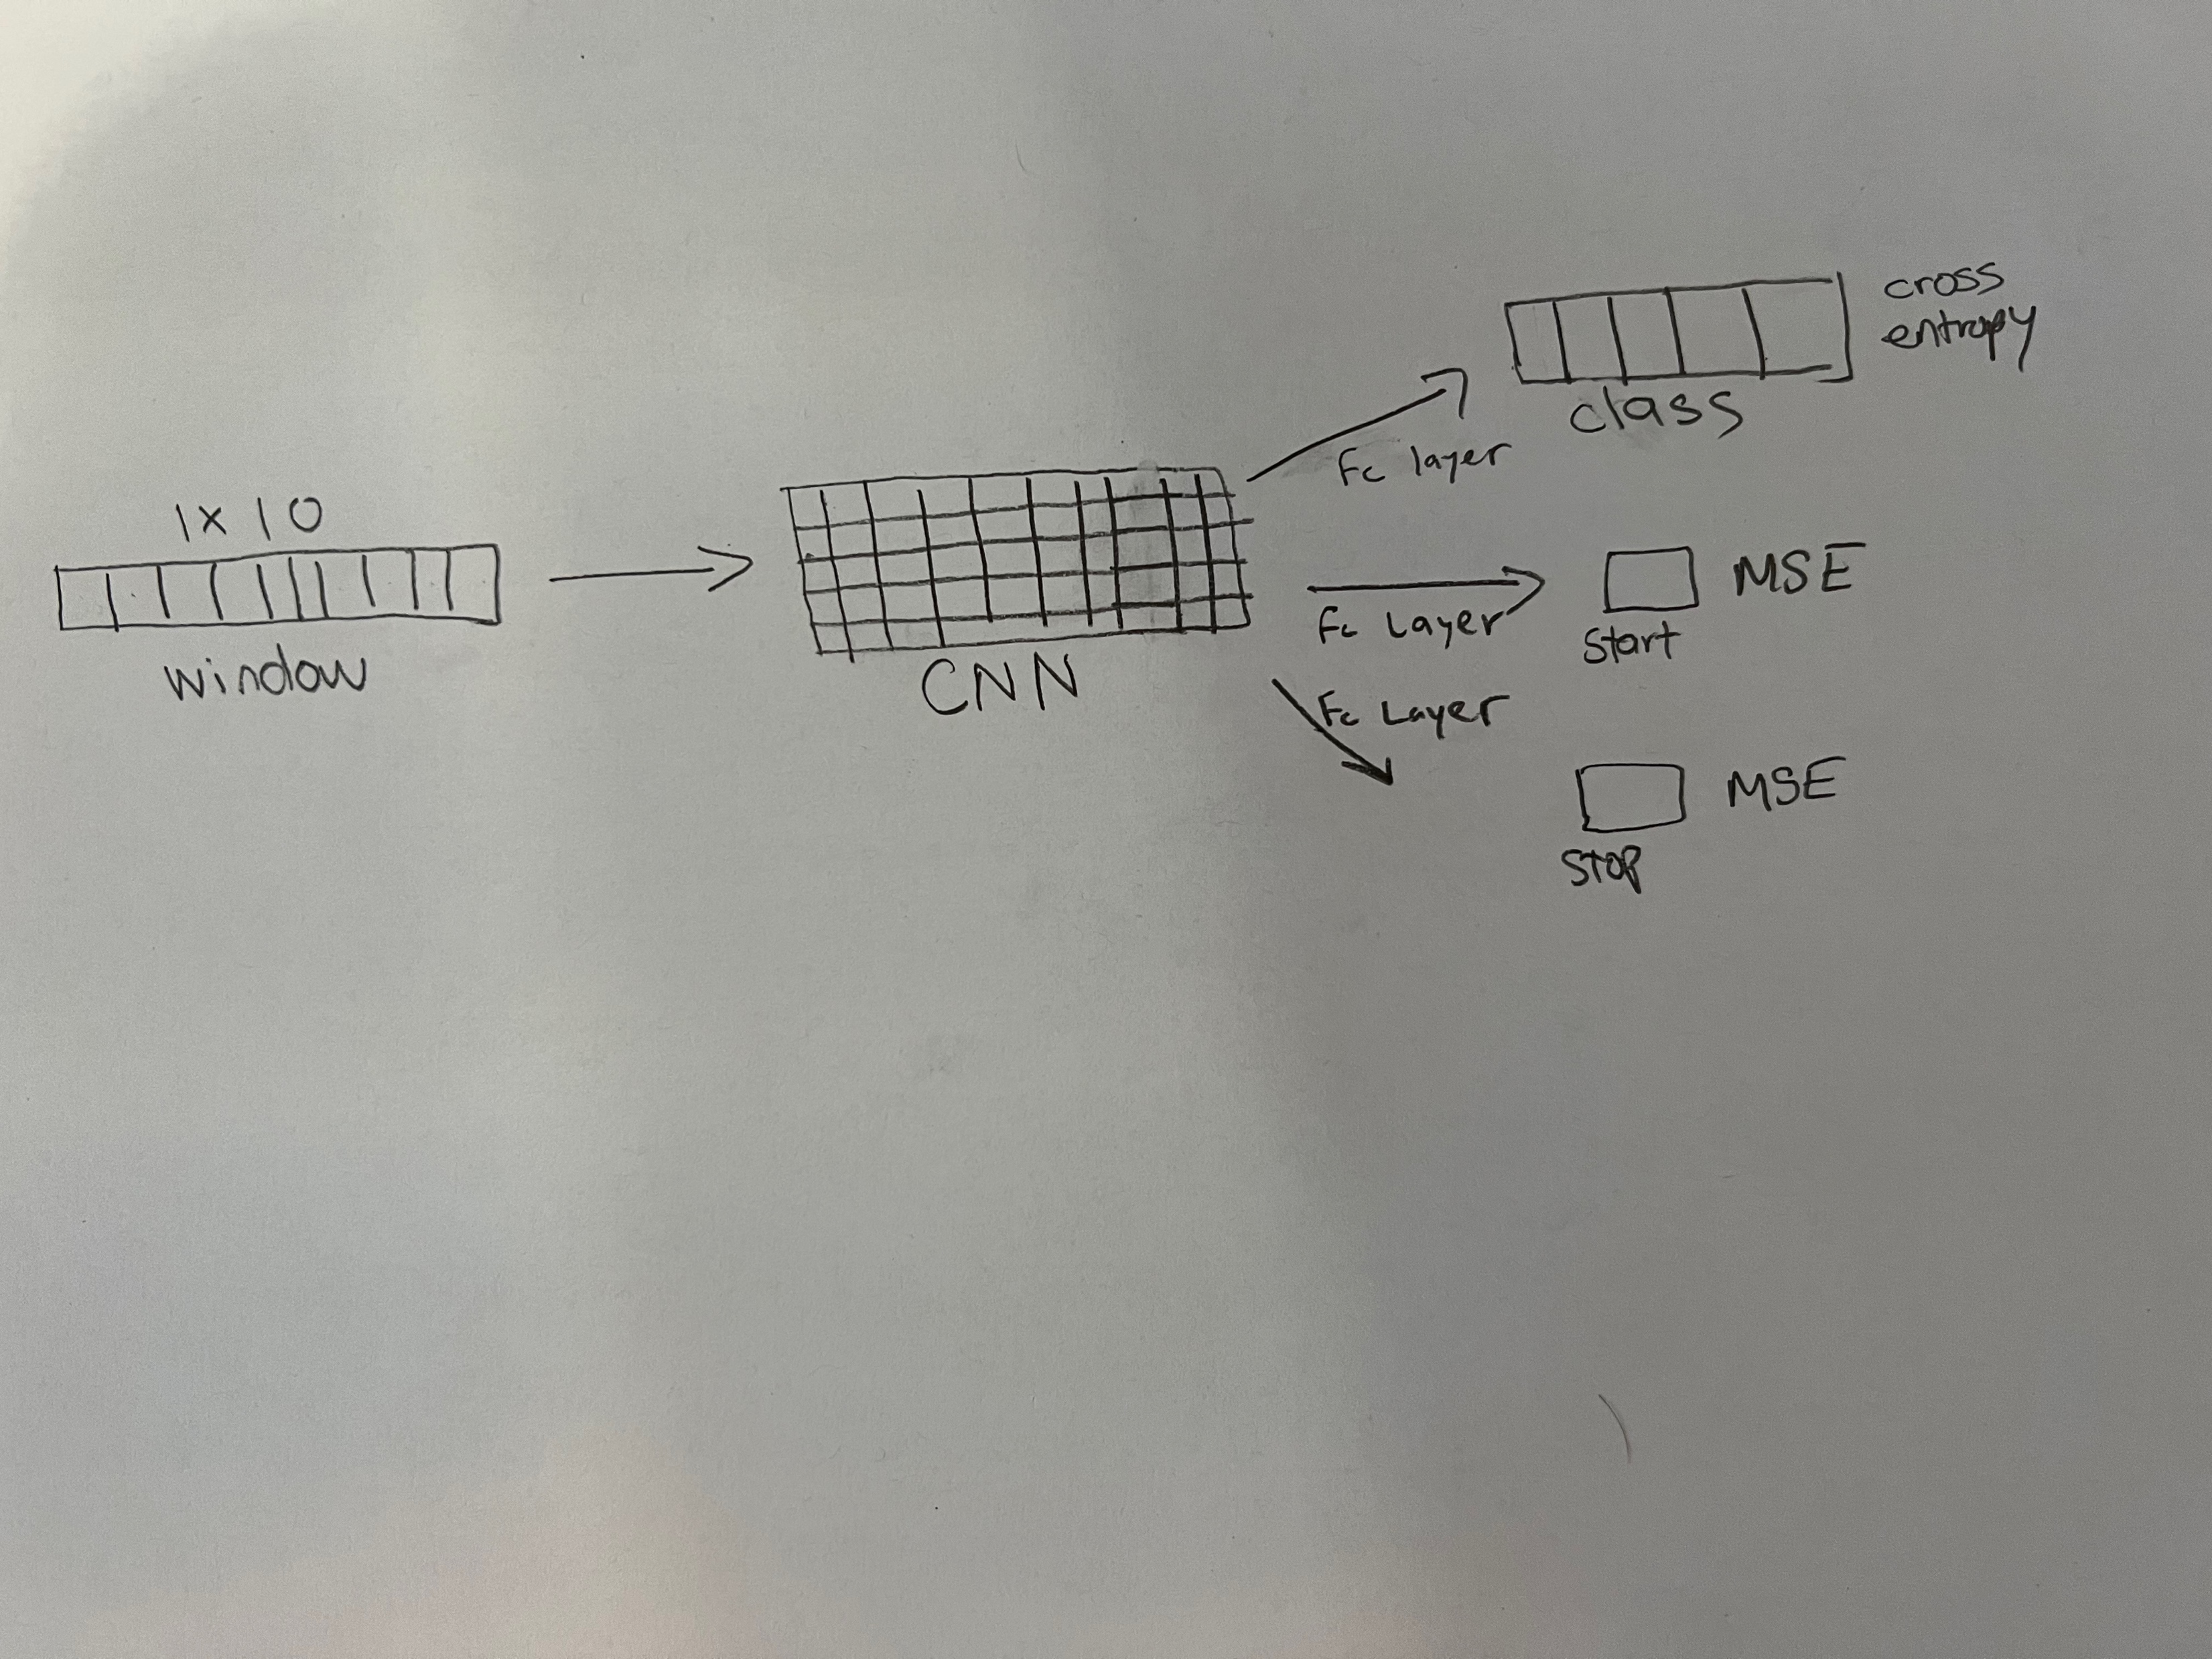 1x10
window
CNN
Fc layer
class
cross
entropy
Fc Layer
Start
MSE
Fc Layer
STOP
MSE